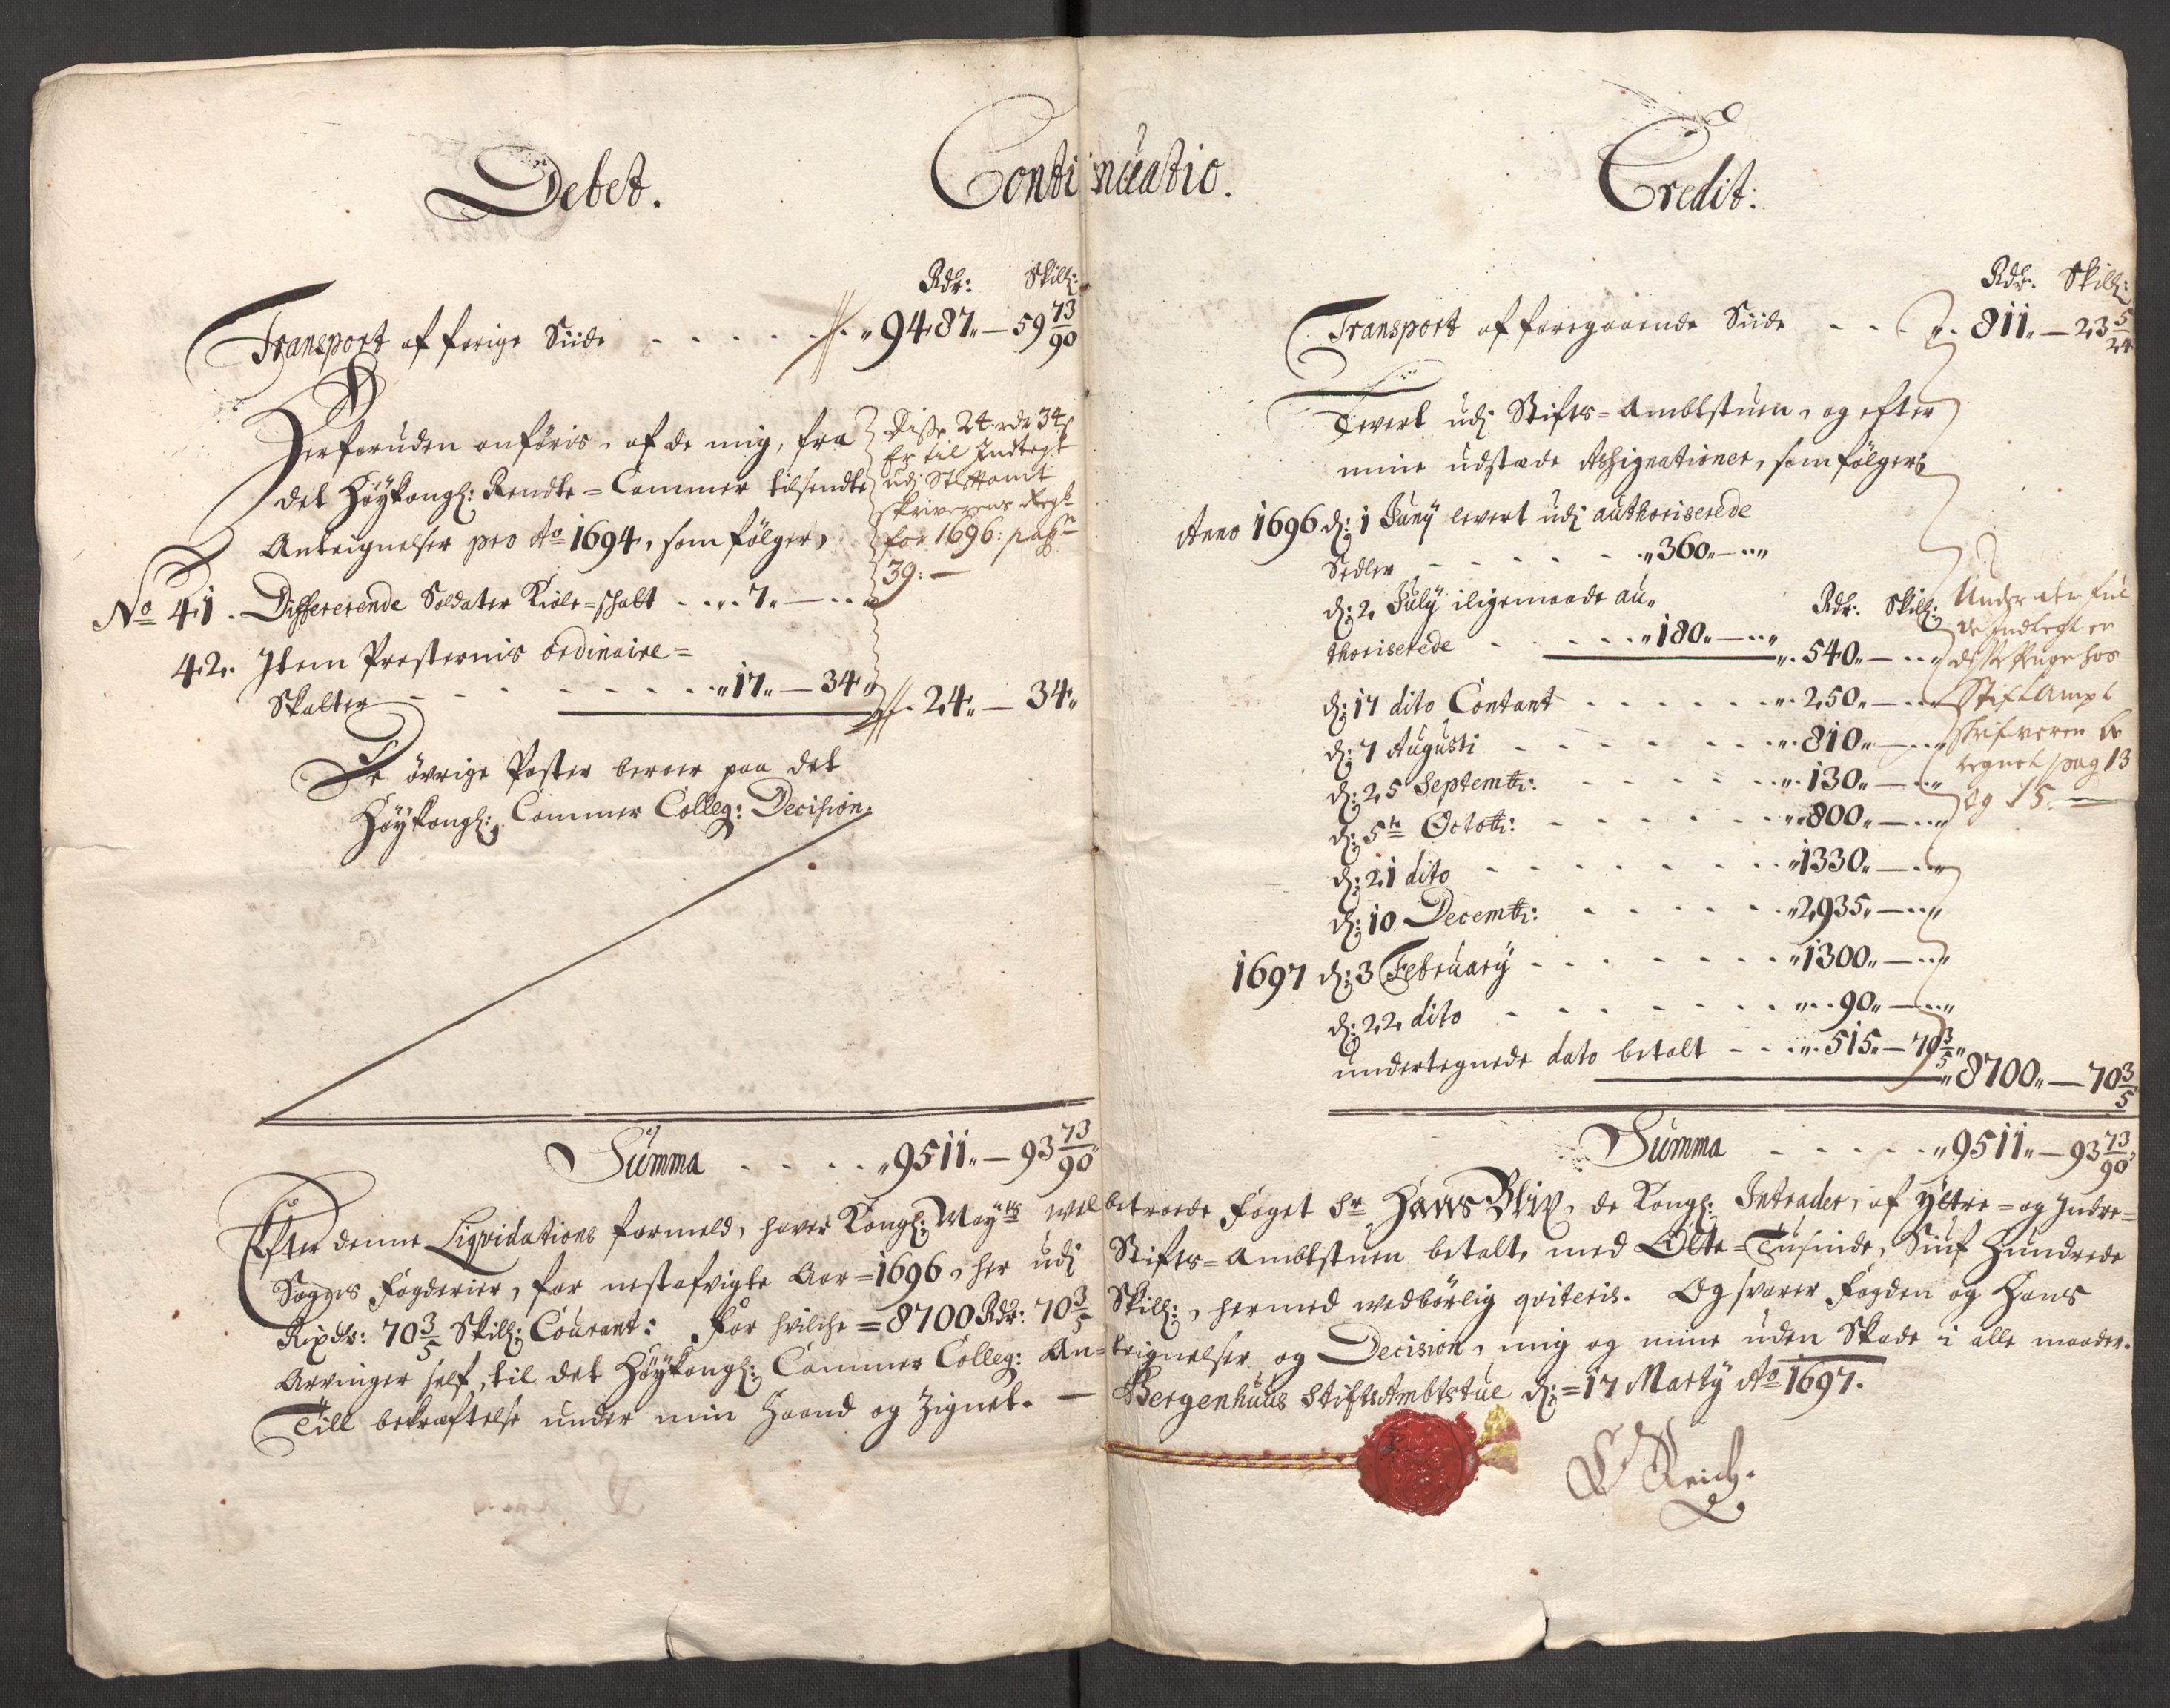 Debet.
Rdr: Skill:
Transport af forige Siide - - - - - 9487 - 59 73/90
Herforuden anföris, af de mig, fra
det Höykongl: Rendte=Cammer tilsendte
Anteignelser pro Ao 1694, som fölger,
No 41. Differerende Soldater Kiole=schatt - - 7 -
42. Item Presternis ordinaire=
Skatter - - - - - - 17 - 34
24 - 34
Disse 24 rdr 34 s
Er til Indtegt
udj Stiftamt
skriverens Regsk
for 1696: pag
39: -
De övrige Poster beroer paa det
Höykongl: Cammer Colleg: Decision.
Summa - - - - 9511 - 93 73/90
Continuatio.
Credit:
Rdr: Skill:
Transport af foregaaende Siide - - - 811 - 23 5/24
Levert udj Stifts=Ambtstuen, og efter
mine udstæde Assignationer, som fölger,
Anno 1696 d: 1 Juny levert udj authoriserede
Sedler - - - - 360 -
d: 2 July iligemaade au-
thoriserede - - - - 180 -
Rdr: Skill:
540 -
d: 17 dito Contant - - - - - 250 -
d: 7 Augusti - - - - - 810 -
d: 25 Septembr: - - - - - 130 -
d: 5te Octobr: - - - - - 800 -
d: 21 dito - - - - - - 1330 -
d: 10 Decembr: - - - - - 2935 -
1697 d: 3 February - - - - - 1300 -
d: 22 dito - - - - - - 90 -
undertegnede dato betalt - - - 515 - 70 3/5
8700 - 70 3/5
Indtegt er
disse penge hos
StiftAmpt
skrifveren be
regnet pag 13
og 15. -
Summa - - - - - 9511 - 93 73/90
Efter denne Liqvidations formeld, haver Kongl: Mayts welbetroede Foget Sr Hans Blix, de Kongl: Intrader, af Yttre=og Indre=
Sogns Fogderier, for nestafvigte Aar=1696, her udj Stifts=Ambtstuen betalt, med Otte=Tusinde, Siuf Hundrede
Rixdr: 70 3/5 Skill: Courant: For hvilche=8700 Rdr: 70 3/5 Skill:, hermed wedbörlig qviteris. Og svarer Fogden og Hans
Arvinger self, til det Höykongl: Cammer Colleg: Anteignelser og Decision, mig og mine uden Skade i alle maader.
Till bekræftelse under min Haand og Zignet. - Bergenhuus StiftsAmbtstue d:=17 Marty Ao 1697.
Reich.